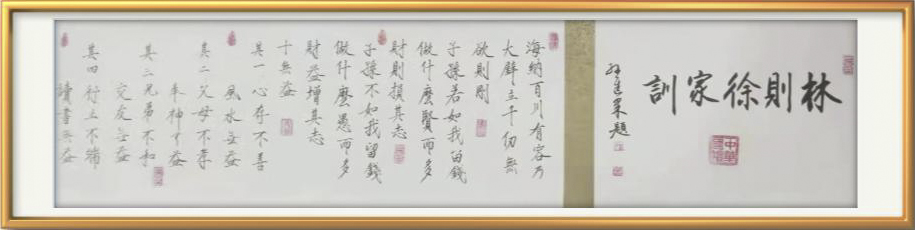 林則徐家訓
題
中華
海納百川有容乃
大壁立千仞無
欲則剛
子孫若如我留錢
做什麼賢而多
財則損其志
子孫不如我留錢
做什麼愚而多
財益增其志
十無益
其一心存不善
風水無益
其二父母不孝
奉神無益
其三兄弟不和
交友無益
其四行止不端
讀書無益